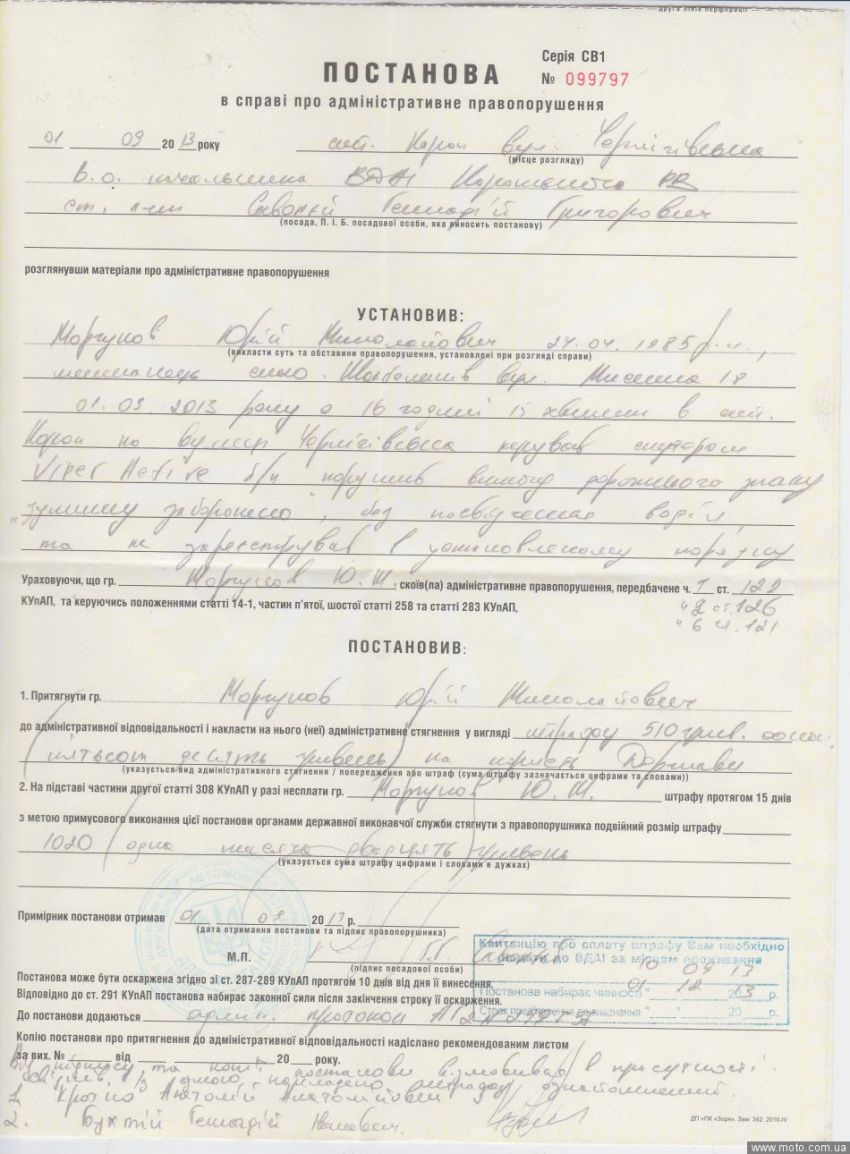 друга лінія перфорації
Серія СВ1
ПОСТАНОВА
№ 099797
в справі про адміністративне правопорушення
01 09 2013 року смт. Короп вул. Чернігівська
(місце розгляду)
В.о. начальника ВДАІ
ст. л-нт Геннадій Григорович
(посада, П. І. Б. посадової особи, яка виносить постанову)
розглянувши матеріали про адміністративне правопорушення
УСТАНОВИВ:
Моргунов Юрій Миколайович 24.04.1985 р.н.,
(викласти суть та обставини правопорушення, установлені при розгляді справи)
мешканець село. вул. 18
01.09.2013 року о 16 годині 15 хвилин в смт.
Короп по вулиці Чернігівська керував скутером
Viper Active б/н порушив вимогу дорожнього знаку
„зупинку заборонено", без посвідчення водія,
та не зареєстрував в установленому порядку
Ураховуючи, що гр. Моргунов Ю.М. скоїв(ла) адміністративне правопорушення, передбачене ч. 1 ст. 122
КУпАП, та керуючись положеннями статті 14-1, частин п'ятої, шостої статті 258 та статті 283 КУпАП,
ч 2 ст. 126
ч 6 ст. 121
ПОСТАНОВИВ:
1. Притягнути гр. Моргунов Юрій Миколайович
до адміністративної відповідальності і накласти на нього (неї) адміністративне стягнення у вигляді штрафу 510 грив.
(п'ятьсот десять гривень) на користь Держави
(указується вид адміністративного стягнення / попередження або штраф (сума штрафу зазначається цифрами та словами))
2. На підставі частини другої статті 308 КУпАП у разі несплати гр. Моргунов Ю.М. штрафу протягом 15 днів
з метою примусового виконання цієї постанови органами державної виконавчої служби стягнути з правопорушника подвійний розмір штрафу
1020 (одна тисяча двадцять) гривень
(указується сума штрафу цифрами і словами в дужках)
Примірник постанови отримав 01 09 2013 р.
(дата отримання постанови та підпис правопорушника)
М.П.
(підпис посадової особи)
Квитанцію про сплату штрафу Вам необхідно
надати до ВДАІ за місцем проживання
Постанова може бути оскаржена згідно зі ст. 287-289 КУпАП протягом 10 днів від дня її винесення.
Постанова набирає чинності
20 р.
Відповідно до ст. 291 КУпАП постанова набирає законної сили після закінчення строку її оскарження.
До постанови додаються адмін. протокол
Копію постанови про притягнення до адміністративної відповідальності надіслано рекомендованим листом
за вих. № від 20 року.
Від підпису та копії постанови відмовився в присутності
свідків. ознайомлений.
1. Анатолій Анатолійович
2. Геннадій Іванович.
ДП «ПК «Зоря». Зам. 342. 2010-IV
www.moto.com.ua